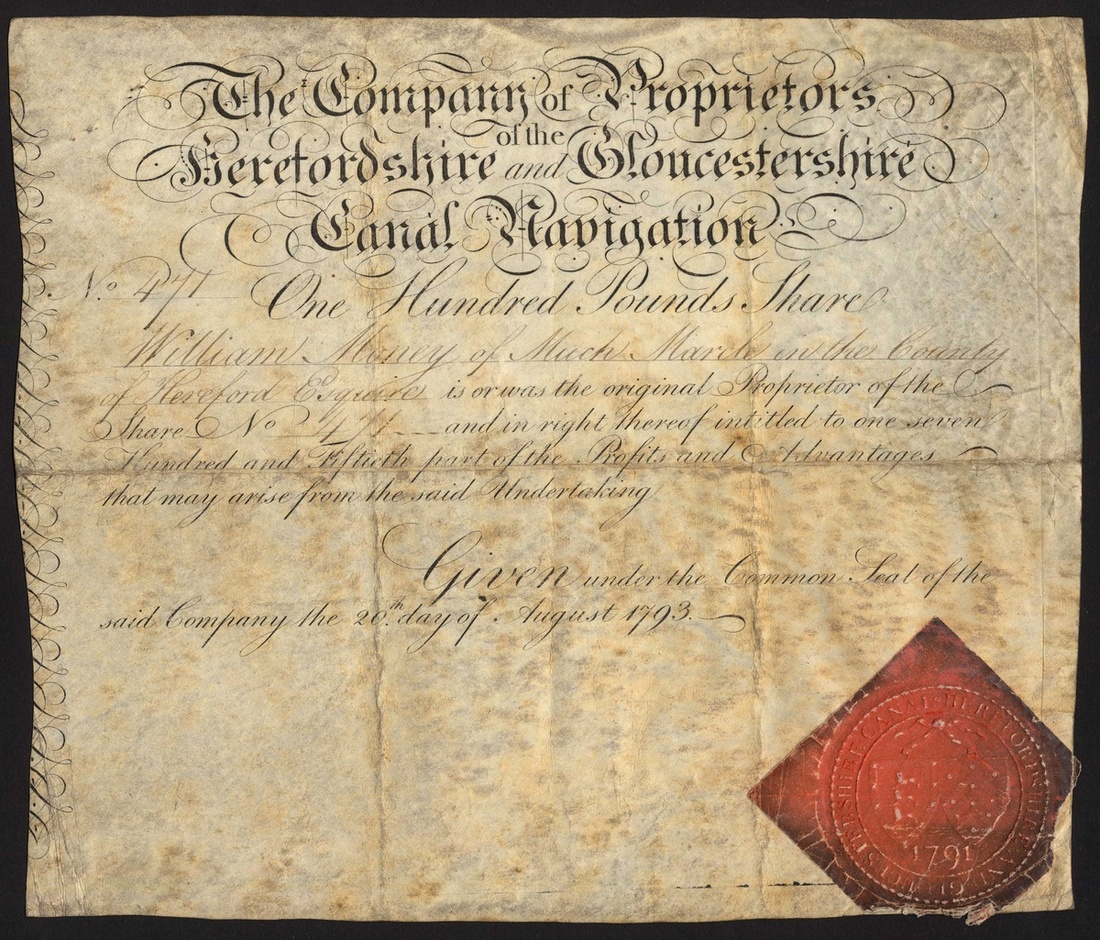 The Company of Proprietors
of the
Herefordshire and Gloucestershire
Canal Navigation
No. 471 One Hundred Pounds Share
William Money of Much Marcle in the County
of Hereford Esquire is or was the original Proprietor of the
Share No 471 and in right thereof intitled to one seven
Hundred and Fiftieth part of the Profits and Advantages
that may arise from the said Undertaking
Given under the Common Seal of the
said Company the 20.th day of August 1793.
HEREFORDSHIRE AND GLOUCESTERSHIRE CANAL
1791